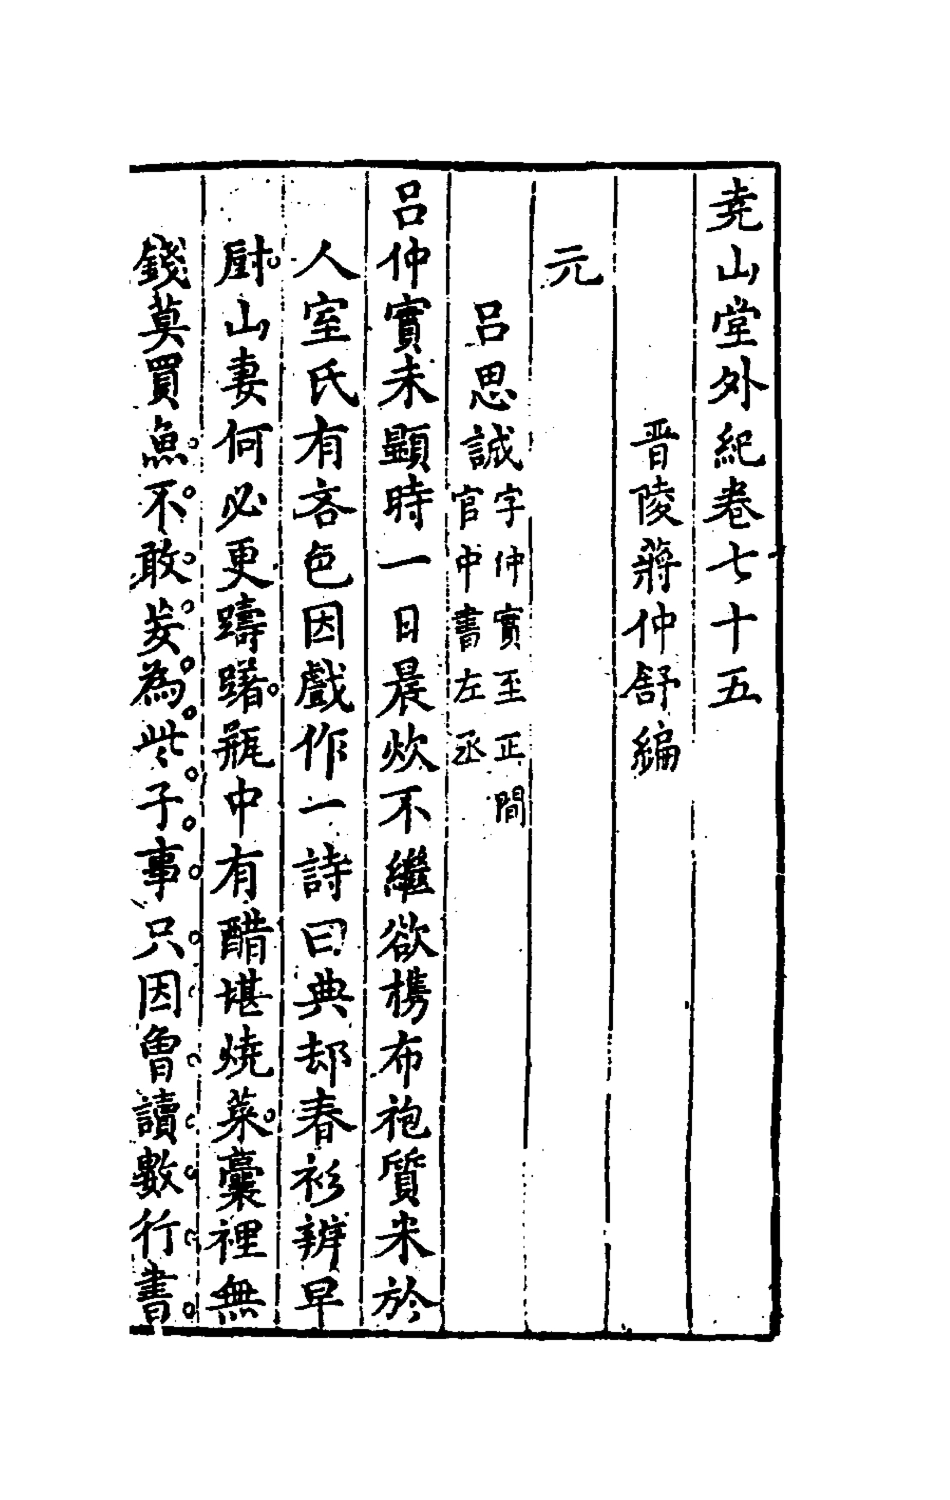 尭山堂外紀卷七十五
晋陵蔣仲舒編
元
呂思誠字仲實至正間官中書左丞
呂仲實未顯時一日晨炊不繼欲携布袍質米於
人室氏有吝色因戲作一詩曰典却春衫辨早
厨山妻何必更躊躇瓶中有醋堪燒菜囊裡無
錢莫買魚不敢妄為此子事只因曾讀數行書